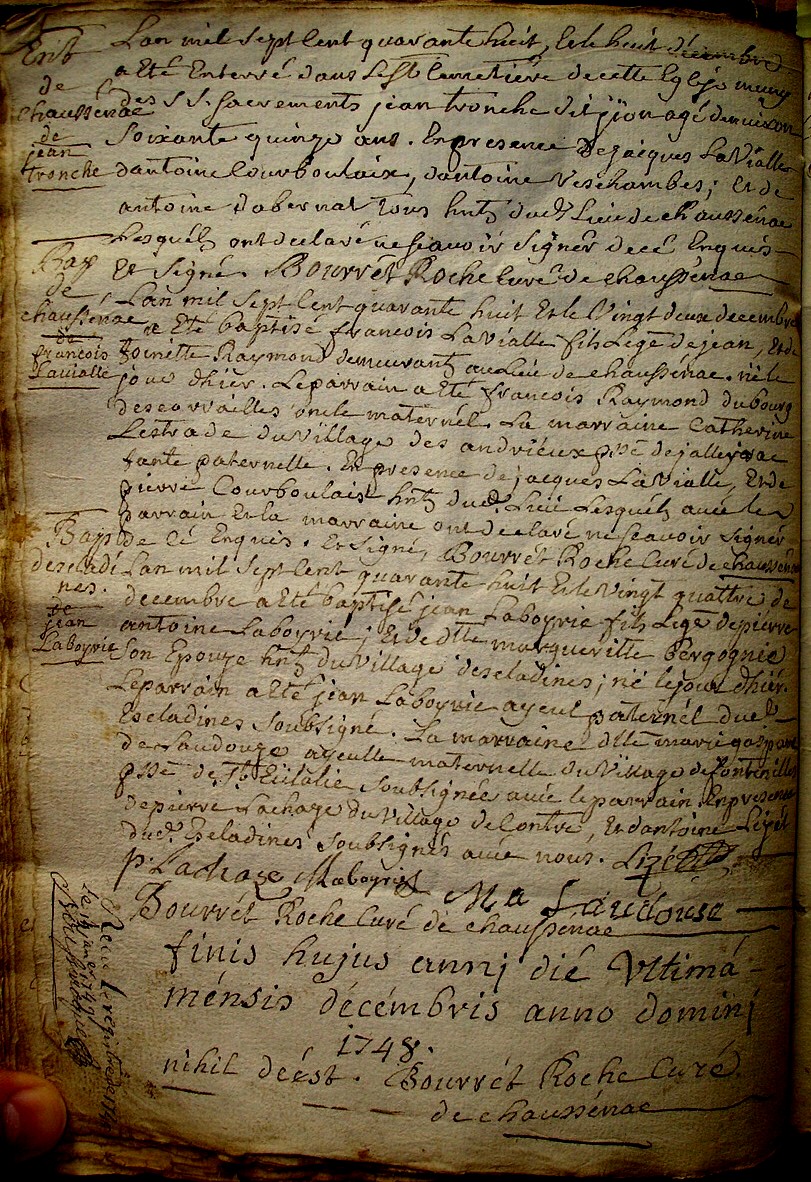 Erit
de
chaussénac
de
jean
tronche
Lan mil sept Cent quarante huit, Et le huit décembre
a Eté Enterré dans Le St Cemetiére de cette Eglise muny
des SS. sacrements jean tronche dit agé denviron
Soixante quinze ans. En presence De jacques LaVialle
dantoine Courboulaix, dantoine Veschambes; Et de
antoine dabernat tous hntz dud. Lieu de chaussénac
Lesquéls ont declaré ne sçavoir Signér de cé Enquis
Et Signé. Bourrét Roche Curé de chaussénac
Bap
de
chaussénac
de
francois
Lavialle
Lan mil Sept Cent quarante huit Et le Vingt deux decembre
a Eté baptisé francois LaVialle fils Lége de jean, Et de
toinétte Raymond demeurants au Lieu de chaussénac. né le
jour dhiér. Le parrain a Eté francois Raymond du bourg
descorrailles oncle maternél. La marraine Catherine
Lestrade du Village des andriéux psse de jalleyrac
tante paternelle. En presence de jacques LaVialle, Et de
pierre Courboulaix hntz dud. Liéu Lesquéls avec le
parrain Et la marraine ont declaré ne sçavoir Signér
de cé Enquis. Et Signé, Bourrét Roche Curé de chaussénac
Bap
deseladi
nes.
de
jean
Laboyrie
Lan mil Sept Cent quarante huit Et le Vingt quattre de
decembre a Eté baptisé jean Laboyrie fils Lége de pierre
antoine Laboyrie; Et de dlle margueritte Bergognie
Son Epouze hntz du Village deseladines; né le jour dhiér.
Le parrain a Eté jean Laboyrie ayeul paternél dud.
Eseladines Soubsigné. La marraine dlle marie
de Laudouze ayeulle maternelle du Village de fontenilles
psse de Ste Eulalie Soubsignée avec le parrain. En presence
de pierre Lachaze du Village de Contre, Et dantoine Lizét
dud. Eseladines Soubsignés avec nous. Lizét
p. Lachaze Laboyrie Ma Laudouse
Bourrét Roche Curé de chaussénac
finis hujus annj dié Vltimá
ménsis décémbris anno dominj
1748.
nihil deést. Bourrét Roche Curé
de chaussénac